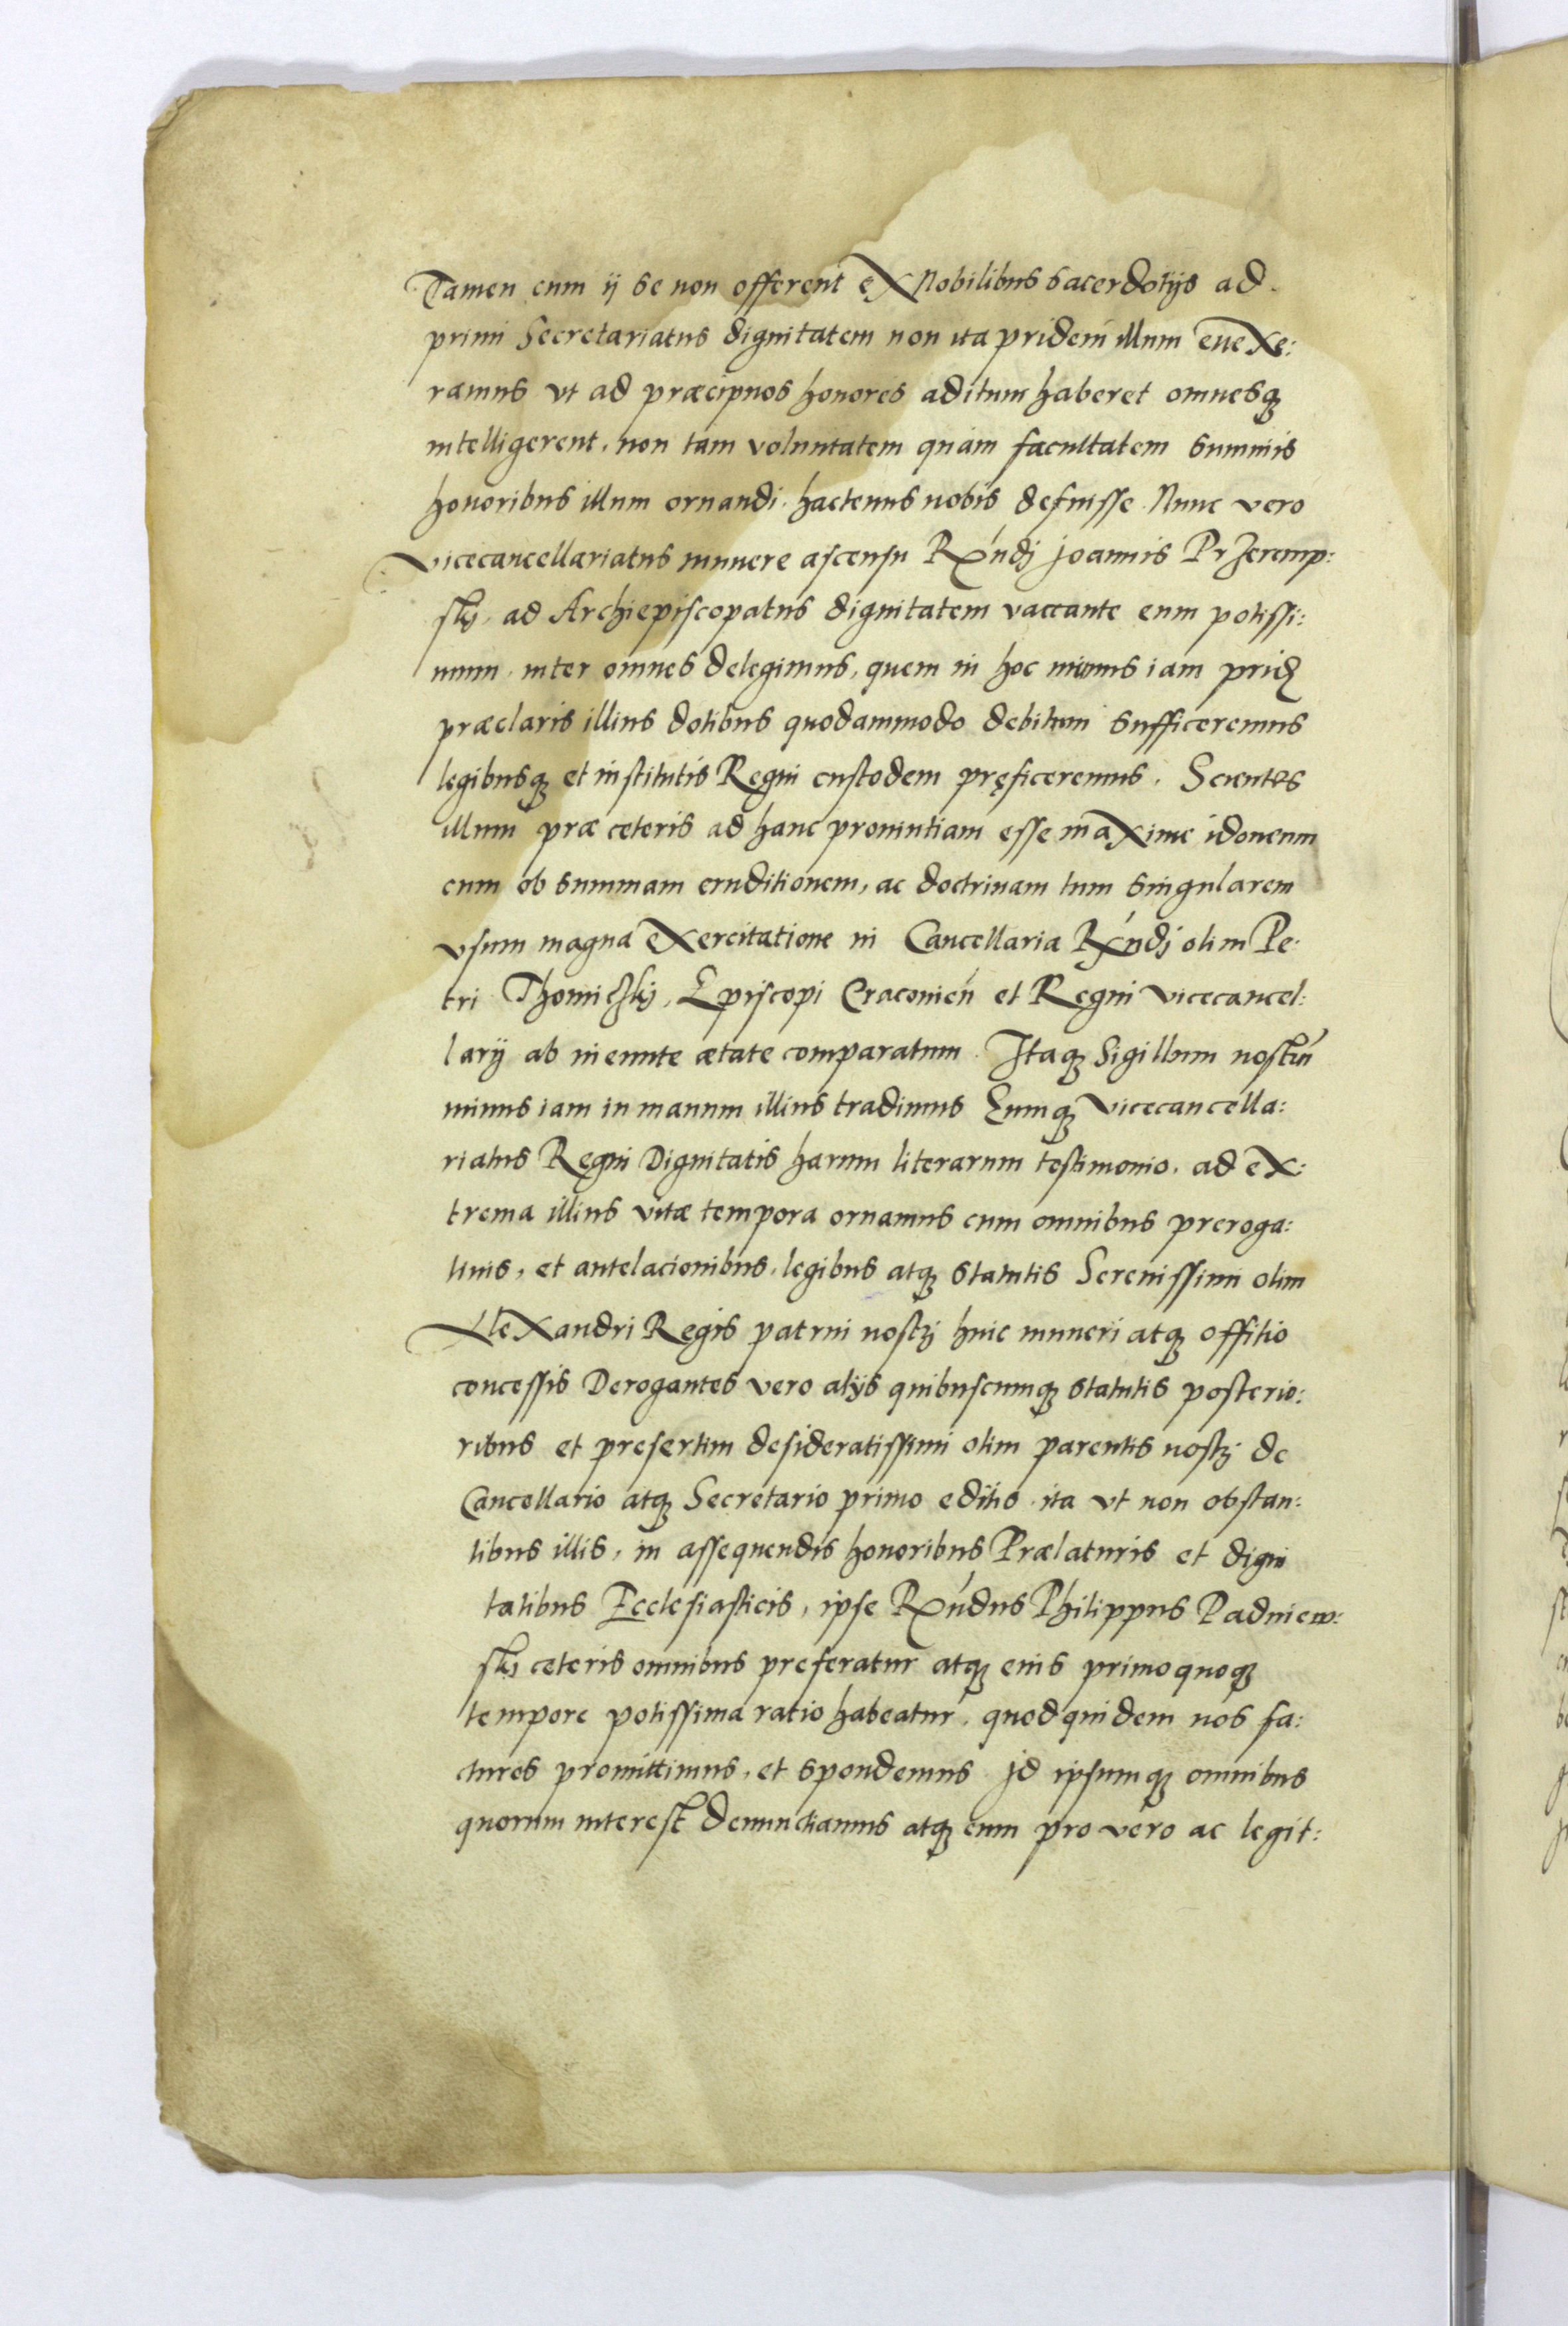 Tamen cum ij se non offerent ex Nobilibus sacerdotijs ad
primi Secretariatus dignitatem non ita pridem illum euexe:
ramus vt ad præcipuos honores aditum haberet omnesqꝫ
intelligerent, non tam voluntatem quàm facultatem summis
honoribus illum ornandi hactenus nobis defuisse. Nunc vero
vicecancellariatus munere ascensu Rx́ndj Joannis Przeremp:
skij, ad Archiepiscopatus dignitatem vaccante eum potissi:
mum inter omnes delegimus, quem in hoc munus iam prid
præclaris illius dotibus quodammodo debitum sufficeremus
legibusqꝫ et institutis Regni custodem pręficeremus. Scientes
illum præ ceteris ad hanc prouintiam esse maxime idoneum
cum ob summam eruditionem, ac doctrinam tum singularem
vsum magna exercitatione in Cancellaria Rx́ndj olim Pe:
tri Thomiczkij, Episcopi Cracouień et Regni vicecancel:
larij ab ineunte ætate comparatum. Itaqꝫ Sigillum nostrū
minus iam in manum illius tradimus Eumqꝫ vicecancella:
riatus Regni Dignitatis harum literarum testimonio, ad ex:
trema illius vitæ tempora ornamus cum omnibus preroga:
tiuis, et antelacionibus, legibus atqꝫ statutis Serenissimi olim
Alexandri Regis patrui nostrj huic muneri atqꝫ offitio
concessis Derogantes vero alijs quibuscumqꝫ statutis posterio:
ribus et presertim desideratissimi olim parentis nostrj de
Cancellario atqꝫ Secretario primo editis ita vt non obstan:
tibus illis, in assequendis honoribus Prælaturis et digni
tatibus Ecclesiasticis, ipse Rx́ndus Philippus Padniew:
skij ceteris omnibus preferatur atqꝫ eius primo quoqꝫ
tempore potissima ratio habeatur, quod quidem nos fa:
cturos promittimus, et spondemus Jd ipsumqꝫ omnibus
quorum interest denunctiamus atqꝫ eum pro vero ac legit: